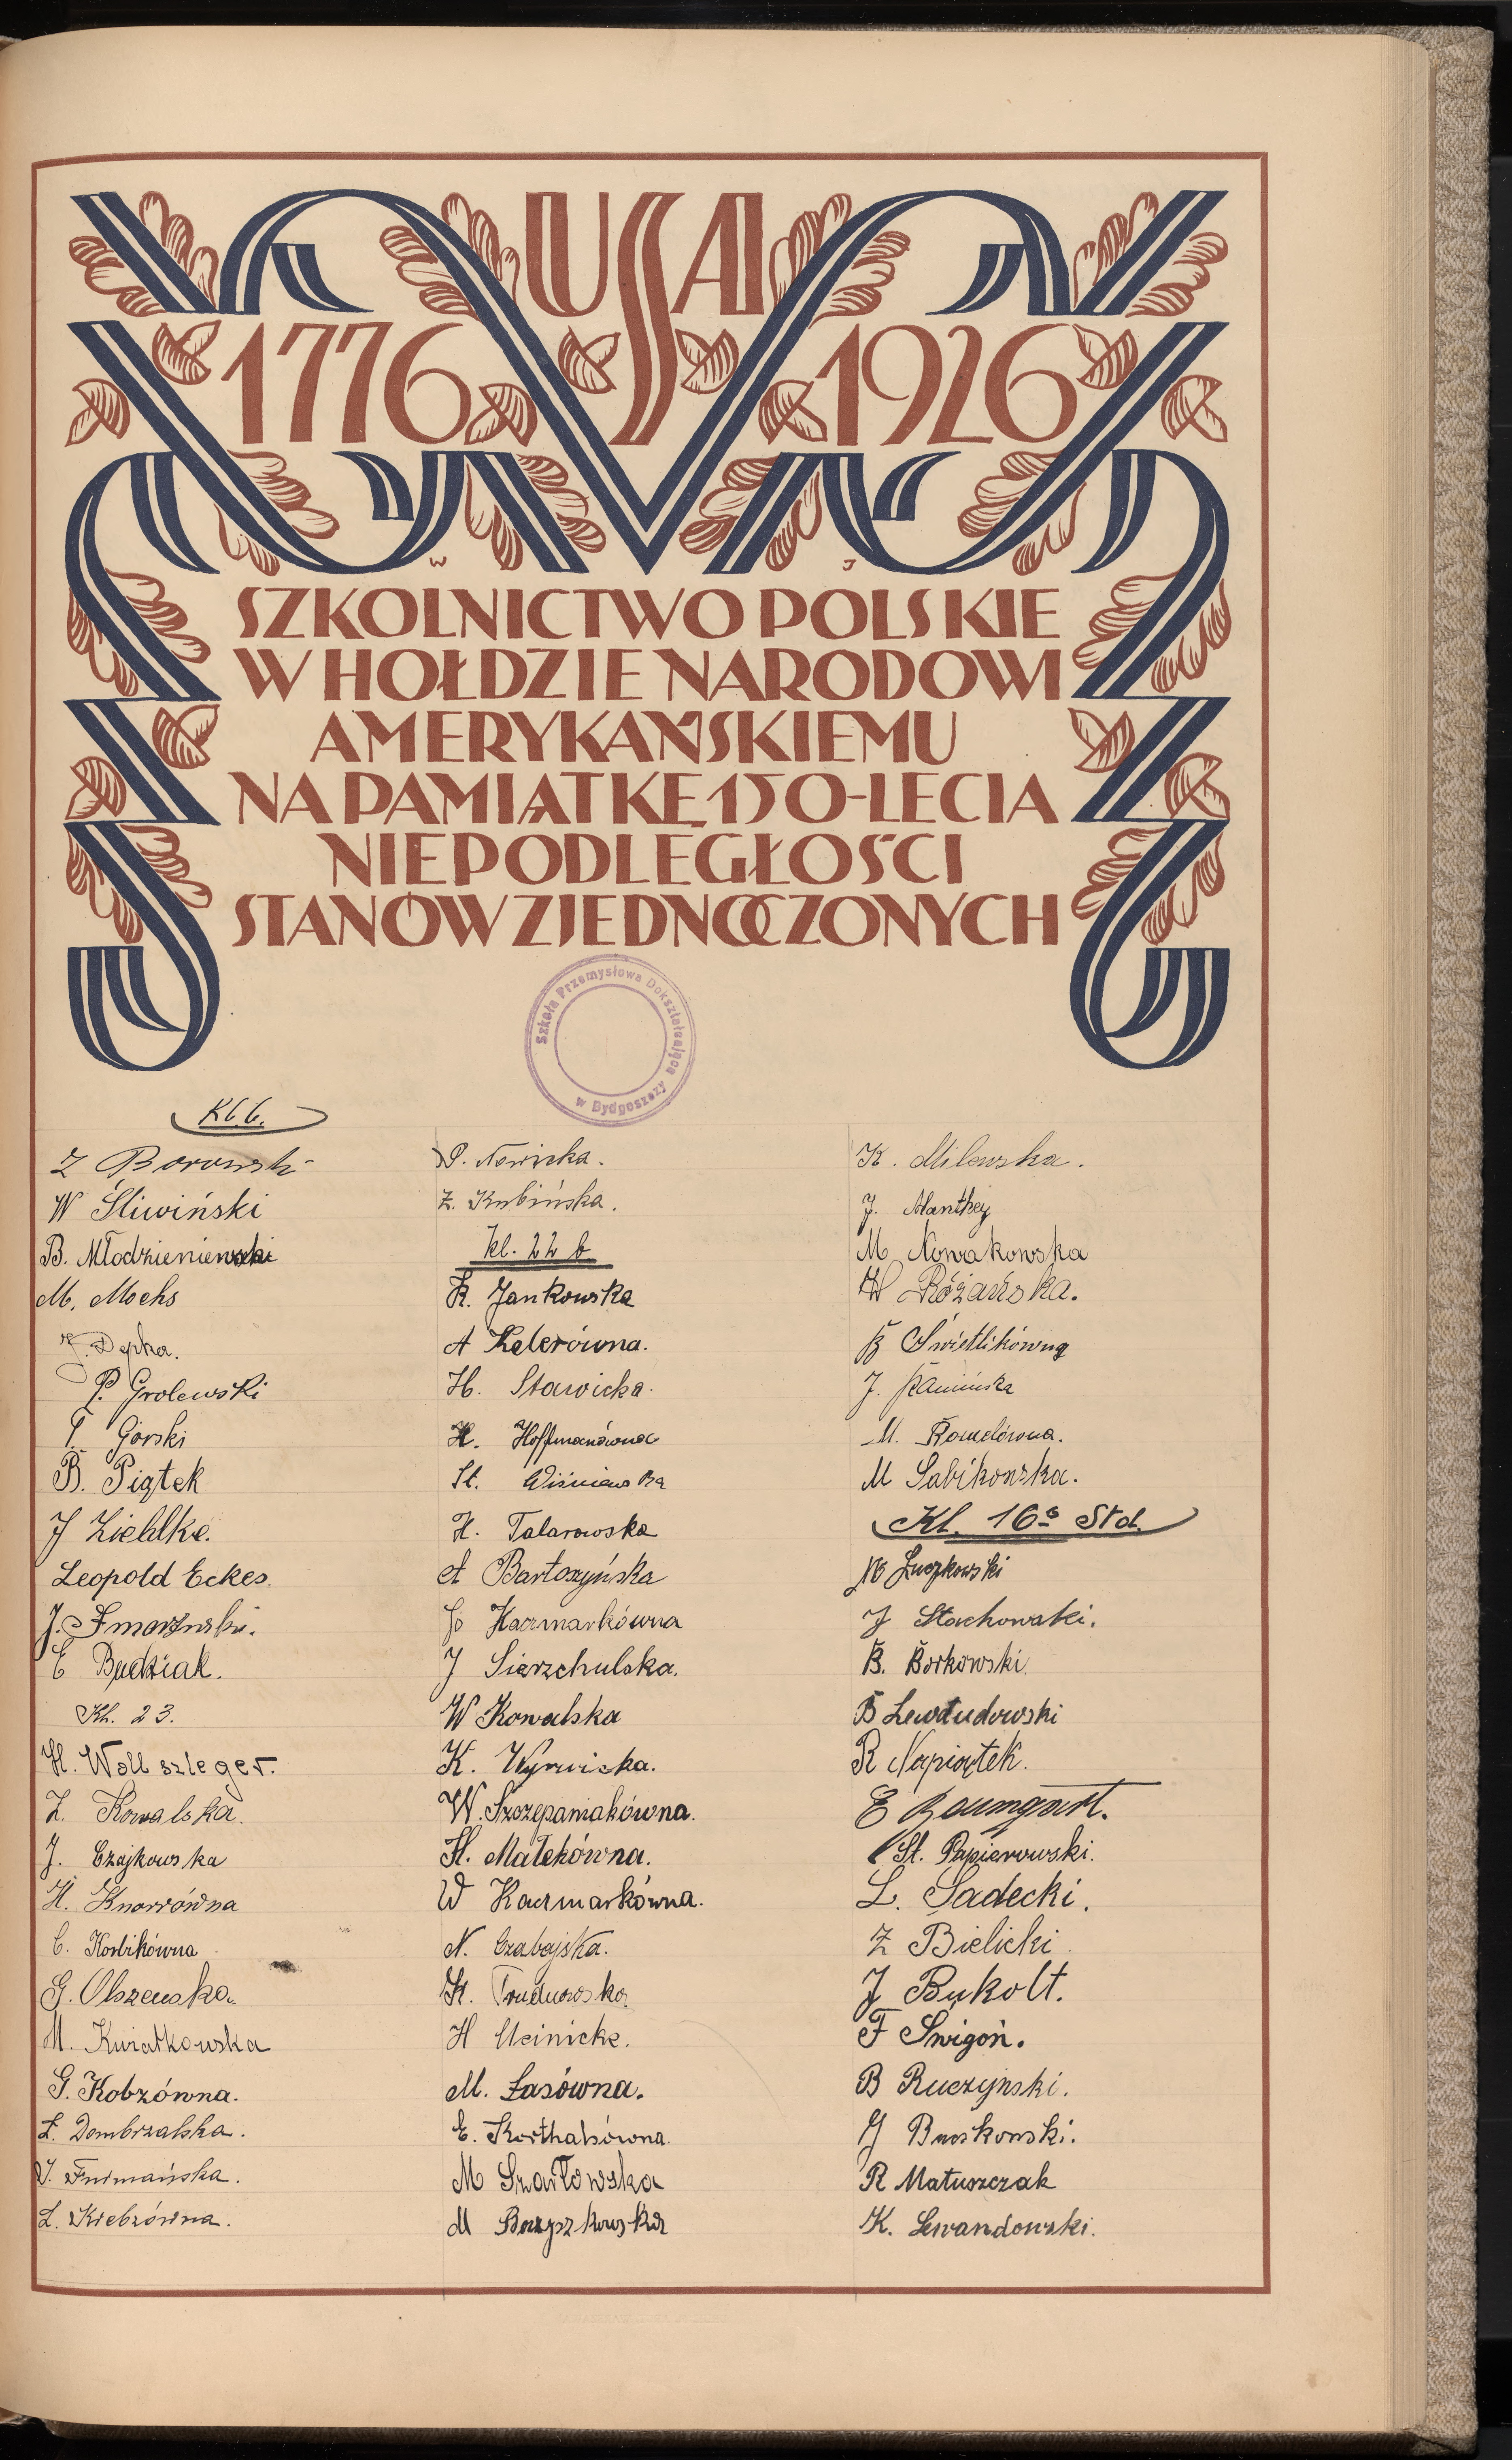 USA
1776 1926
W J
SZKOLNICTWO POLSKIE
W HOŁDZIE NARODOWI
AMERYKAŃSKIEMU
NA PAMIĄTKĘ 150-LECIA
NIEPODLEGŁOŚCI
STANÓW ZJEDNOCZONYCH
Szkoła Przemysłowa Dokształcająca
w Bydgoszczy
Kl 6.
Z Borowski
W Śliwiński
B. Młodzieniewski
M. Mochs
J. Depka.
P. Grolewski
Górski
B. Piątek
J Zielilke.
Leopold Eckes.
J.
E Budziak.
Kl. 23.
H. Woll szleger.
Z. Kowalska.
J. Czajkowska
H. Knorrówna
C. Korbikówna
G. Olszewska.
M. Kwiatkowska
G. Kobzówna.
Ł. Dombrzalska.
J. Furmańska.
Ł. Krebzówna.
P. Nowicka.
Z. Kubińska.
kl. 22 b
K. Jankowska
A Kelerówna.
H. Stawicka.
H. Hoffmanówna
St. Wiśniewska
H. Talarowska
A Bartoszyńska
Kaczmarkówna
J Sierzchulska.
W Kowalska
K. Wyrwicka.
W. Szczepaniakówna.
H. Małekówna.
W Kaczmarkówna.
N. Czabajska.
K. Trudnowska
H Meinicke.
M. Lasówna.
E. Korthalsówna.
M Szarłowska
M Borzyszkowska
K. Milewska.
J. Manthey
M Nowakowska
W Różańska.
B Świetlikówna
J. Kamińska
M. Romelówna.
M Sabikowska.
Kl. 16 c Std.
M Luczkowski
J Stachowski.
B. Borkowski.
B Lewtudowski
R Napiątek.
E Baumgart.
St. Papierowski.
L. Sadecki.
Z Bielicki
J Bukolt.
F Śwìgoń.
B Ruczyński.
J Buskowski.
R Matuszczak
K. Lewandowski.